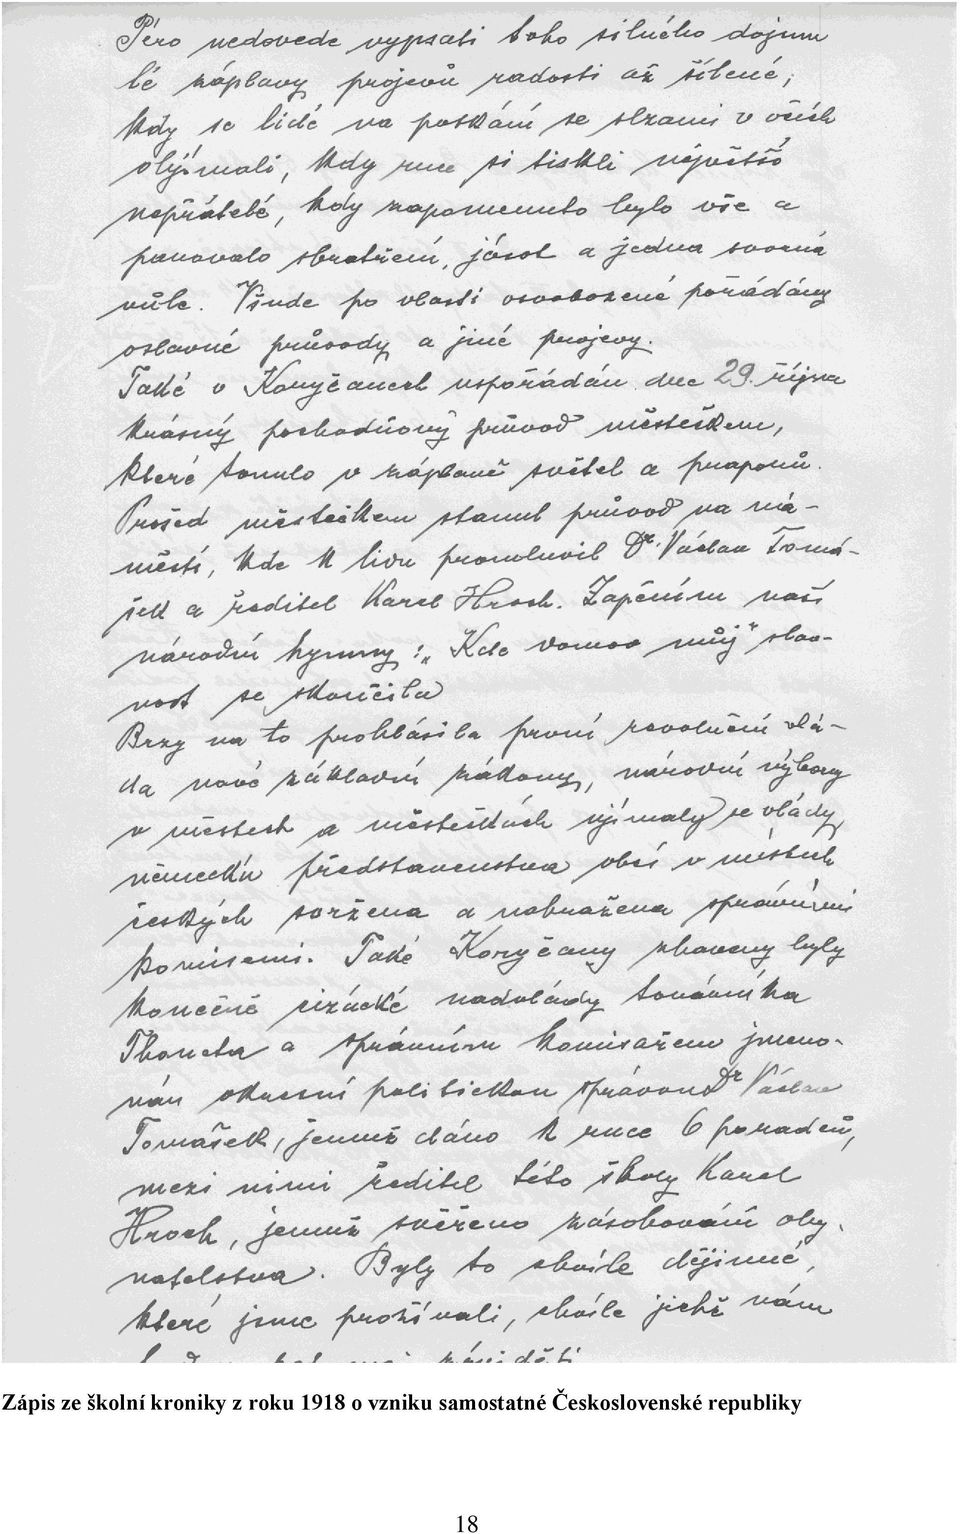 Péro nedovede vypsati toho silného dojmu
té záplavy projevů radosti až šílené,
kdy se lidé na potkání se slzami v očích
objímali, kdy ruce si tiskli největší
nepřátelé, kdy zapomenuto bylo vše a
panovalo sbratření, jásot a jedna svorná
vůle. Všude po vlasti osvobozené pořádány
oslavné průvody a jiné projevy.
Také v Koryčanech uspořádán dne 29. října
krásný pochodňový průvod městečkem,
které tonulo v záplavě světel a praporů.
Prošed městečkem stanul průvod na ná-
městí, kde k lidu promluvil Dr. Václav Tomá-
šek a ředitel Karel Hroch. Zapěním naší
národní hymny: „Kde domov můj" slav-
nost se skončila
Brzy na to prohlásila první revoluční vlá-
da nové základní zákony, národní výbory
v městech a městečkách ujímaly se vlády,
německá představenstva obcí v místech
českých svržena a nahražena správními
komisemi. Také Koryčany zbaveny byly
konečně cizácké nadvlády továrníka
Thoneta a správním komisařem jmeno-
ván okresní politickou správou Dr Václav
Tomášek, jemuž dáno k ruce 6 poradců,
mezi nimi ředitel této školy Karel
Hroch, jemuž svěřeno zásobování oby-
vatelstva. Byly to chvíle dějinné,
které jsme prožívali, chvíle jichž nám
Zápis ze školní kroniky z roku 1918 o vzniku samostatné Československé republiky
18